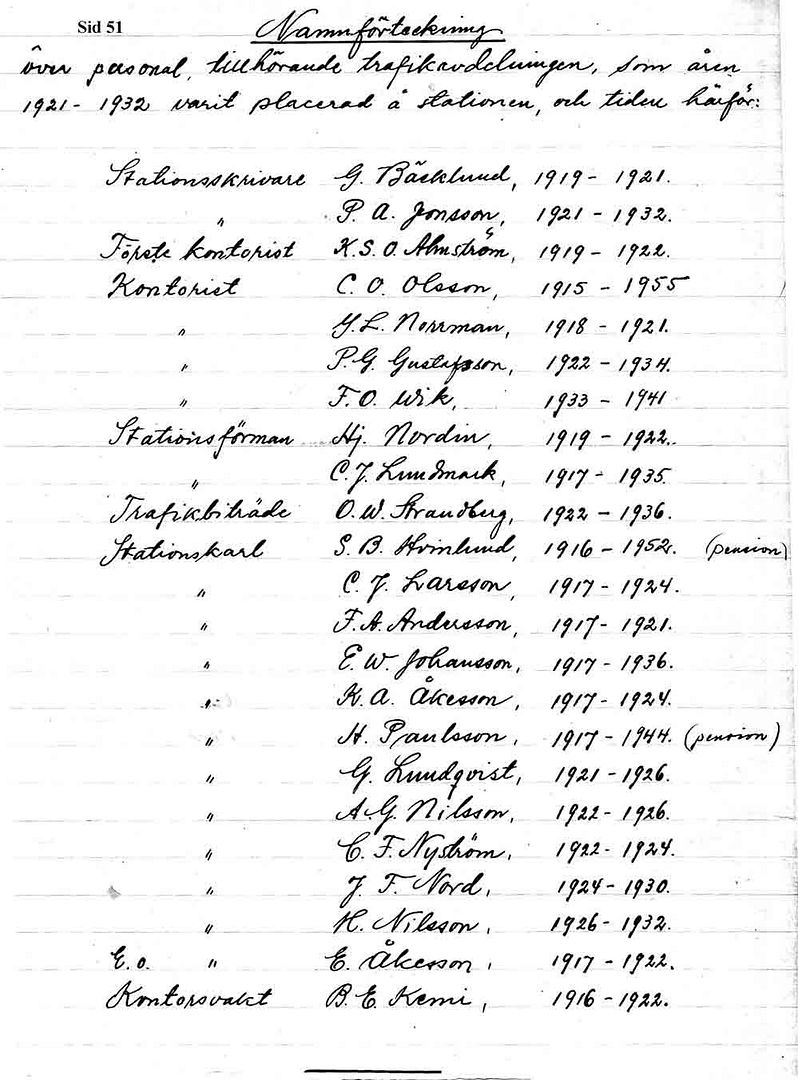 Sid 51
Namnförteckning
över personal, tillhörande trafikavdelningen, som åren
1921 - 1932 varit placerad å stationen, och tiden härför:
Stationsskrivare G. Bäcklund, 1919 - 1921.
" P. A. Jonsson, 1921 - 1932.
Förste kontorist K. S. O. Almström, 1919 - 1922.
Kontorist C. O. Olsson, 1915 - 1955
" G. L. Norrman, 1918 - 1921.
" P. G. Gustafsson, 1922 - 1934.
" F. O. Wik, 1933 - 1941
Stationsförman Hj. Nordin, 1919 - 1922.
" C. J. Lundmark, 1917 - 1935.
Trafikbiträde O. W. Strandberg, 1922 - 1936.
Stationskarl S. B. Hvinlund, 1916 - 1952. (pension)
" C. J. Larsson, 1917 - 1924.
" F. A. Andersson, 1917 - 1921.
" E. W. Johansson, 1917 - 1936.
" K. A. Åkesson, 1917 - 1924.
" H. Paulsson, 1917 - 1944. (pension)
" G. Lundqvist, 1921 - 1926.
" A. G. Nilsson, 1922 - 1926.
" C. F. Nyström, 1922 - 1924.
" J. F. Nord, 1924 - 1930.
" H. Nilsson, 1926 - 1932.
E. o. " E. Åkesson, 1917 - 1922.
Kontorsvakt B. E. Kemi, 1916 - 1922.